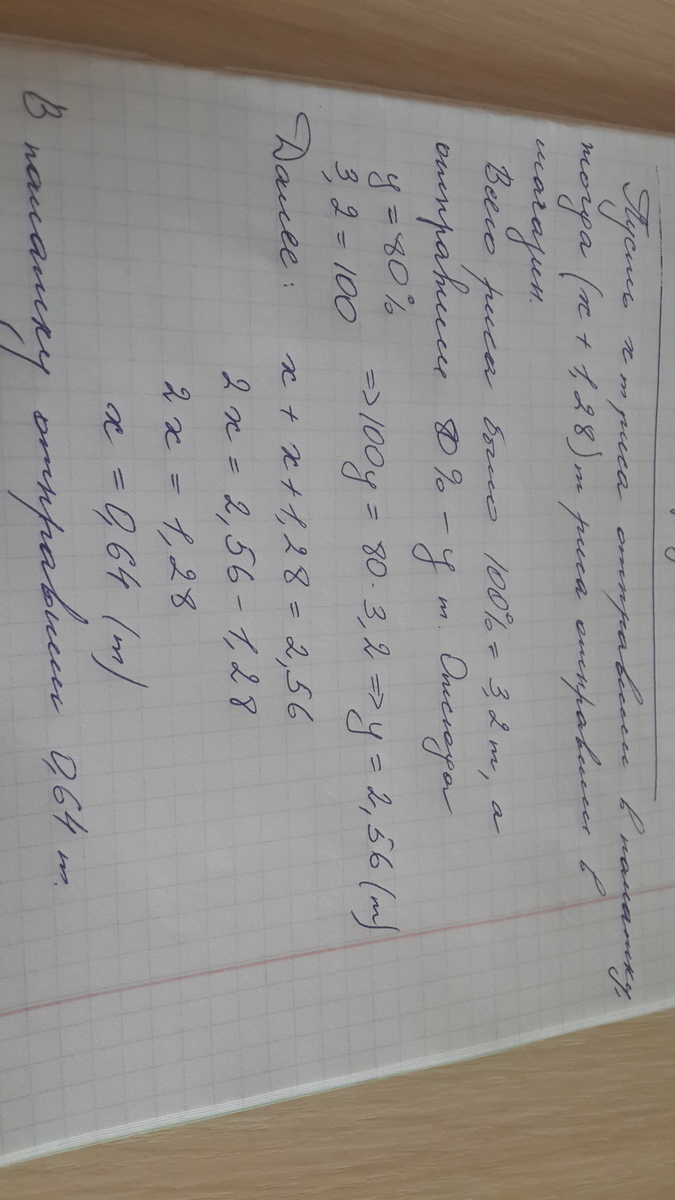 Пусть x т риса отправили в палатку,
тогда (x + 1,28) т риса отправили в
магазин.
Всего риса было 100% = 3,2 т, а
отправили 80% – y т. Отсюда
y = 80%
3,2 = 100 => 100y = 80 · 3,2 => y = 2,56 (т)
Далее: x + x + 1,28 = 2,56
2x = 2,56 - 1,28
2x = 1,28
x = 0,64 (т)
В палатку отправили 0,64 т.